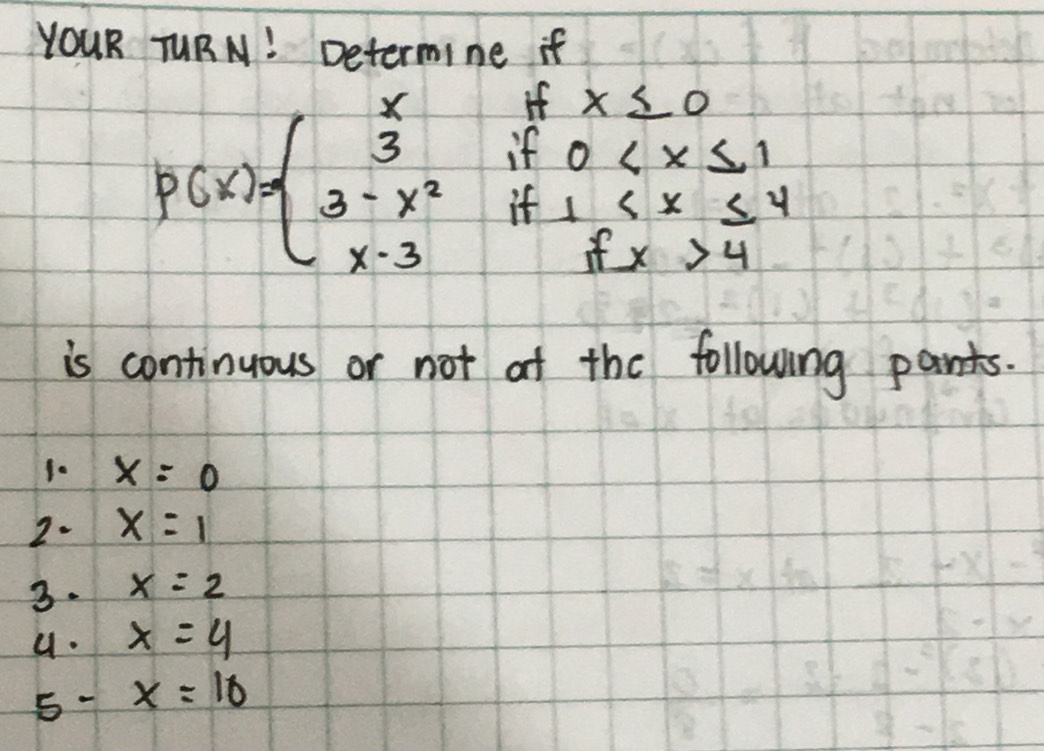 YOUR TURN! Determine if
x if x ≤ 0
3 if 0 < x ≤ 1
p(x)= 3 - x² if 1 < x ≤ 4
x - 3 if x > 4
is continuous or not at the following points.
1. x = 0
2. x = 1
3. x = 2
4. x = 4
5 - x = 10